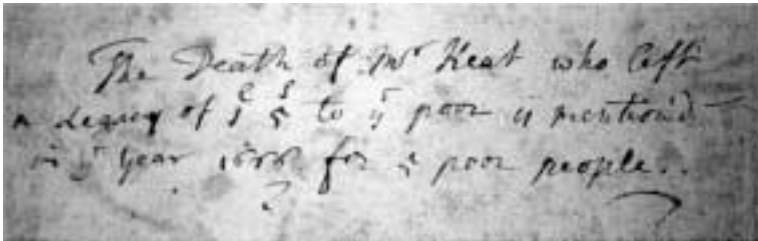 The Death of Mr Keat who left
a Legacy of 5 to ye poor is mention'd
in ye year for 5 poor people..